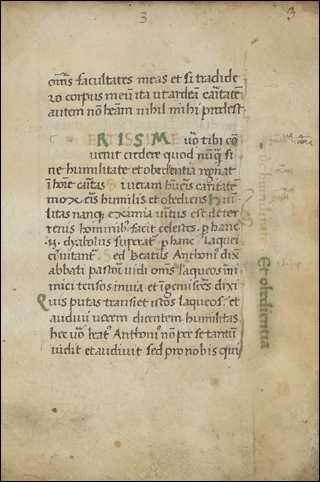 3
3
omēs facultates meas et si tradide
ro corpus meū ita ut ardeā caritatē
autem nō habeam nihil mihi prodest
CERTISSIME uō tibi cō
venit credere quod nūq̄ si
ne humilitate et obedientia regnat
ī hoīe caritas Si veram hūeris caritatē
mox eris humilis et obediens hūi
litas nanq̄ eximia virtus est de ter
renis hominibꝰ facit celestes. p hanc
.n. dyabolus superat᷑ p hanc laquei
ei vitant᷑. Sed Beatus Anthoniꝰ dix
abbati pastori vidi omīs laqueos ini
mici tensos in via et īgemiscēs dixi
Quis putas transiet istos laqueos. et
audivi vocem dicentem humilitas.
hec uō beatꝰ Anthoniꝰ nō per se tantū
vidit et audivit sed pro nobis qui
Et obedientia